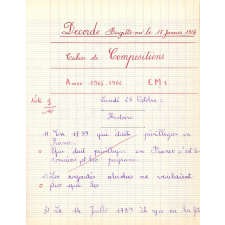 Decorde Brigitte née le 18 janvier 1956
Cahier de Compositions
Année 1965-1966 CM1
Lundi 25 Octobre :
Note 1/10
Histoire
1) En 1789 qui était privilégié en
France.
Qui était privilégié en France c'est le
romains et les paysans.
2) Les royautés absolues ne voulaient
plus que les
3) Le 14 Juillet 1789 il y a eu la